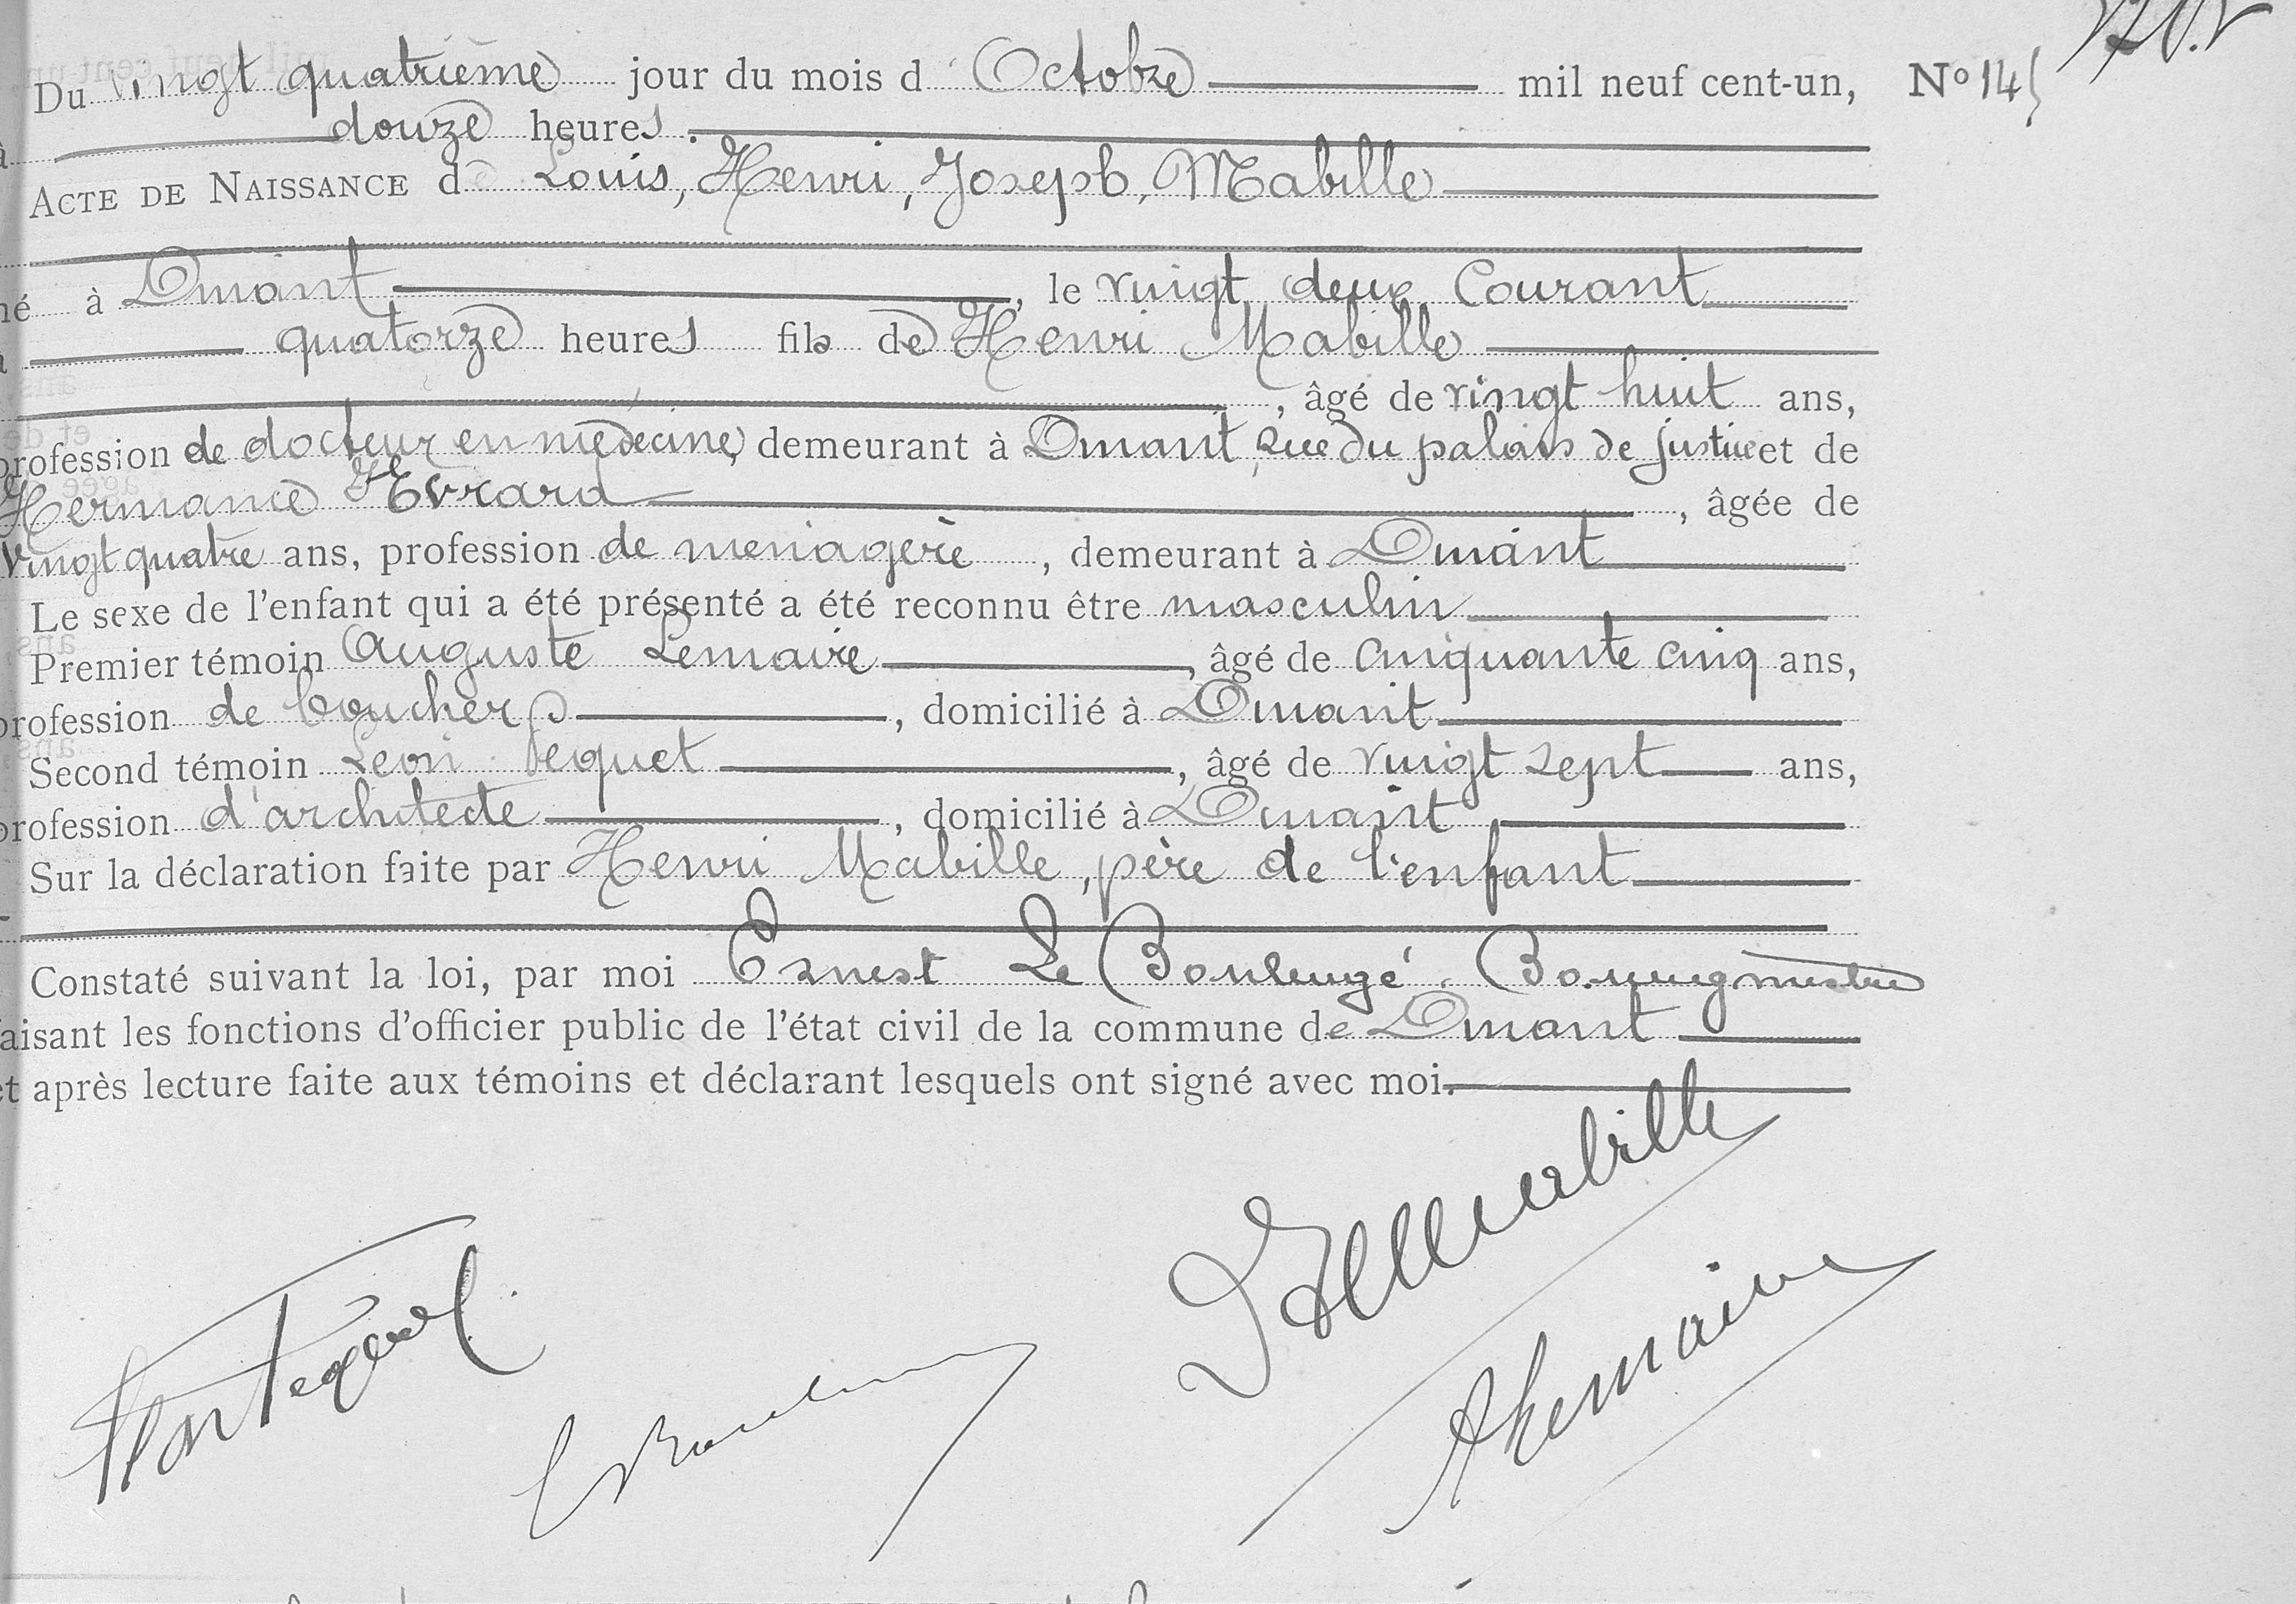 Du vingt quatrième jour du mois d'Octobre mil neuf cent-un, N° 145
à douze heures.
ACTE DE NAISSANCE de Louis, Henri, Joseph, Mabille
né à Dinant, le vingt deux Courant
à quatorze heures fils de Henri Mabille
, âgé de vingt huit ans,
profession de docteur en médecine, demeurant à Dinant, rue du palais de justice et de
Hermance Evrard, âgée de
vingt quatre ans, profession de ménagère, demeurant à Dinant
Le sexe de l'enfant qui a été présenté a été reconnu être masculin
Premier témoin Auguste Lemaire, âgé de cinquante cinq ans,
profession de boucher, domicilié à Dinant
Second témoin Léon Pequet, âgé de vingt sept ans,
profession d'architecte, domicilié à Dinant
Sur la déclaration faite par Henri Mabille, père de l'enfant
Constaté suivant la loi, par moi Ernest Le Boulengé. Bourgmestre
faisant les fonctions d'officier public de l'état civil de la commune de Dinant
et après lecture faite aux témoins et déclarant lesquels ont signé avec moi.
HMabille
Léon Pequet
ALemaire